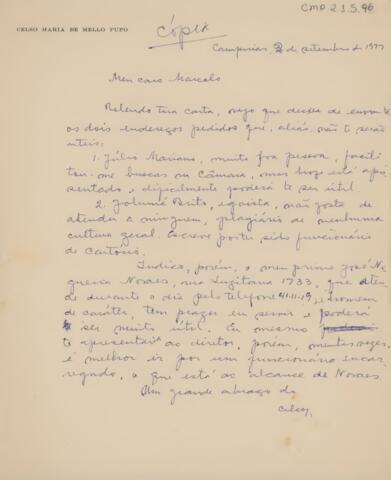 CMP 2.1.5.96
CELSO MARIA DE MELLO PUPO
Cópia
Campinas, 2 de setembro de 1977
Meu caro Marcelo
Relendo tua carta, vejo que deixei de enviar-te
os dois endereços pedidos que, aliás, não te serão
úteis:
1. Júlio Mariano, muito boa pessoa, facili
tou-me buscas na Câmara, mas hoje está apo
sentado e dificilmente poderá te ser útil.
2. Jolumá Brito, egoista, não gosta de
atender a ninguem, plagiário de nenhuma
cultura geral. Escreve por ter sido funcionário
de Cartório.
Indico, porém, o meu primo José No
gueira Novaes, rua Lusitana 1733, que aten
de durante o dia pelo telefone 41.11.19, é homem
de caráter, tem prazer em servir e poderá
ser muito útil. Eu mesmo
te apresentaria ao diretor, porém, muitas vezes,
é melhor ir por um funcionário encar
regado, o que está ao alcance de Novaes.
Um grande abraço do
Celso